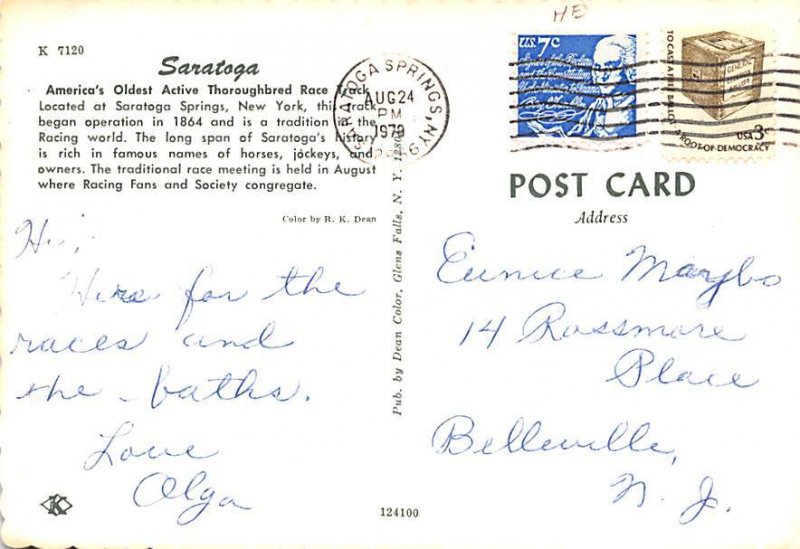 HE
K 7120
Saratoga
America's Oldest Active Thoroughbred Race Track
Located at Saratoga Springs, New York, this track
began operation in 1864 and is a tradition in the
Racing world. The long span of Saratoga's history
is rich in famous names of horses, jockeys, and
owners. The traditional race meeting is held in August
where Racing Fans and Society congregate.
Color by R. K. Dean
Hi,
Here for the
races and
the baths.
Love
Olga
K
Pub. by Dean Color, Glens Falls, N. Y. 12801
124100
SARATOGA SPRINGS, NY
AUG 24
PM
1979
U.S. 7c
TO CAST A FREE BALLOT
A ROOT OF DEMOCRACY
USA 3c
POST CARD
Address
Eunice Marybo
14 Rossmore
Place
Belleville,
N. J.